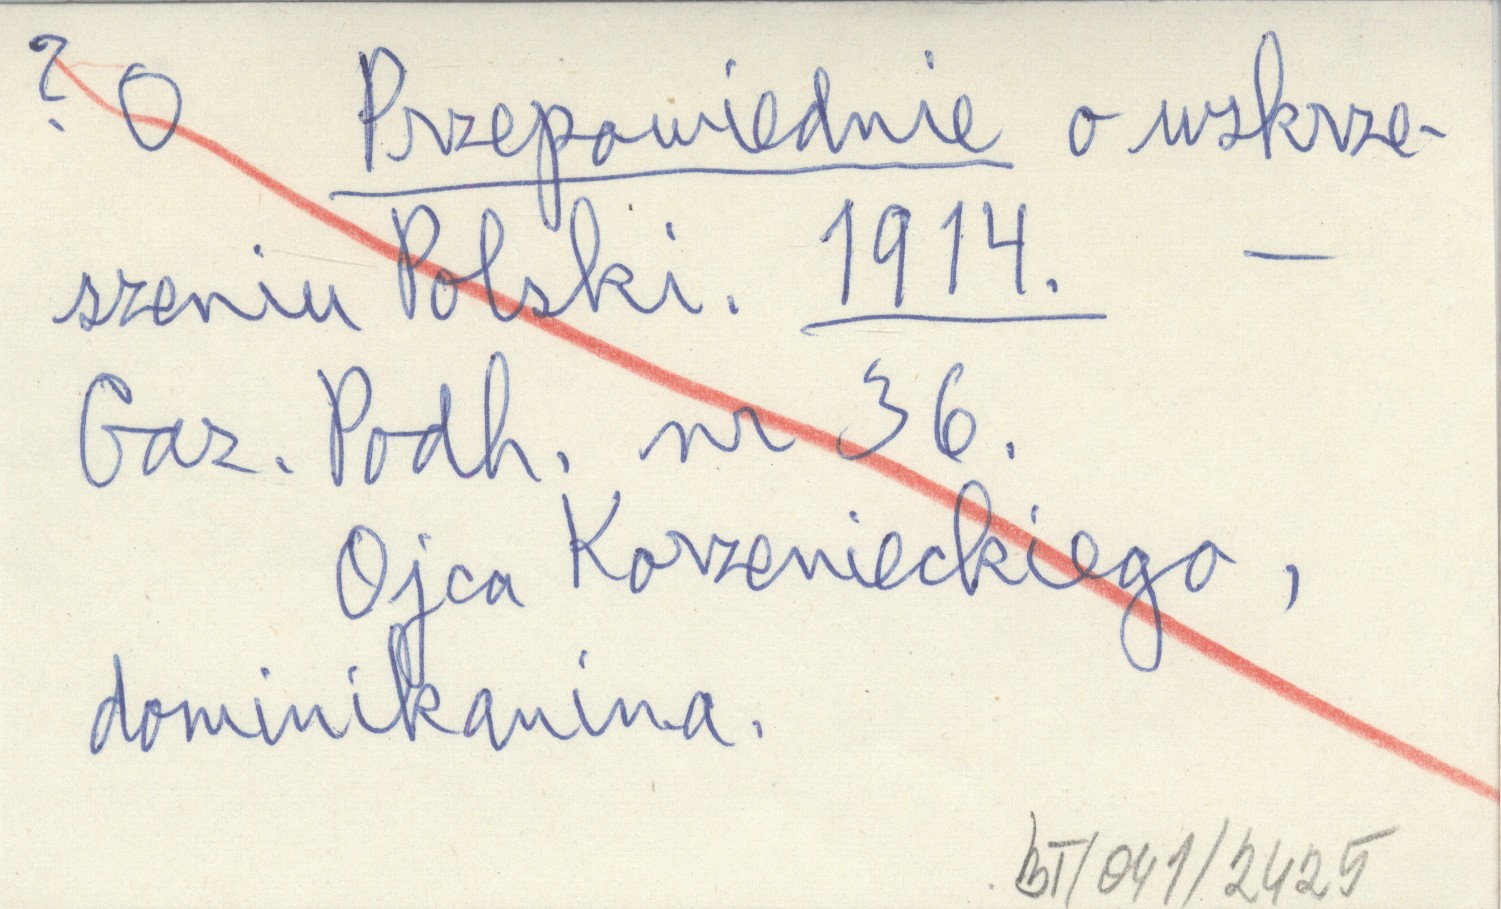 ? O Przepowiednie o wskrze-
szeniu Polski. 1914. —
Gaz. Podh. nr 36.
Ojca Korzenieckiego,
dominikanina.
BT/041/2425